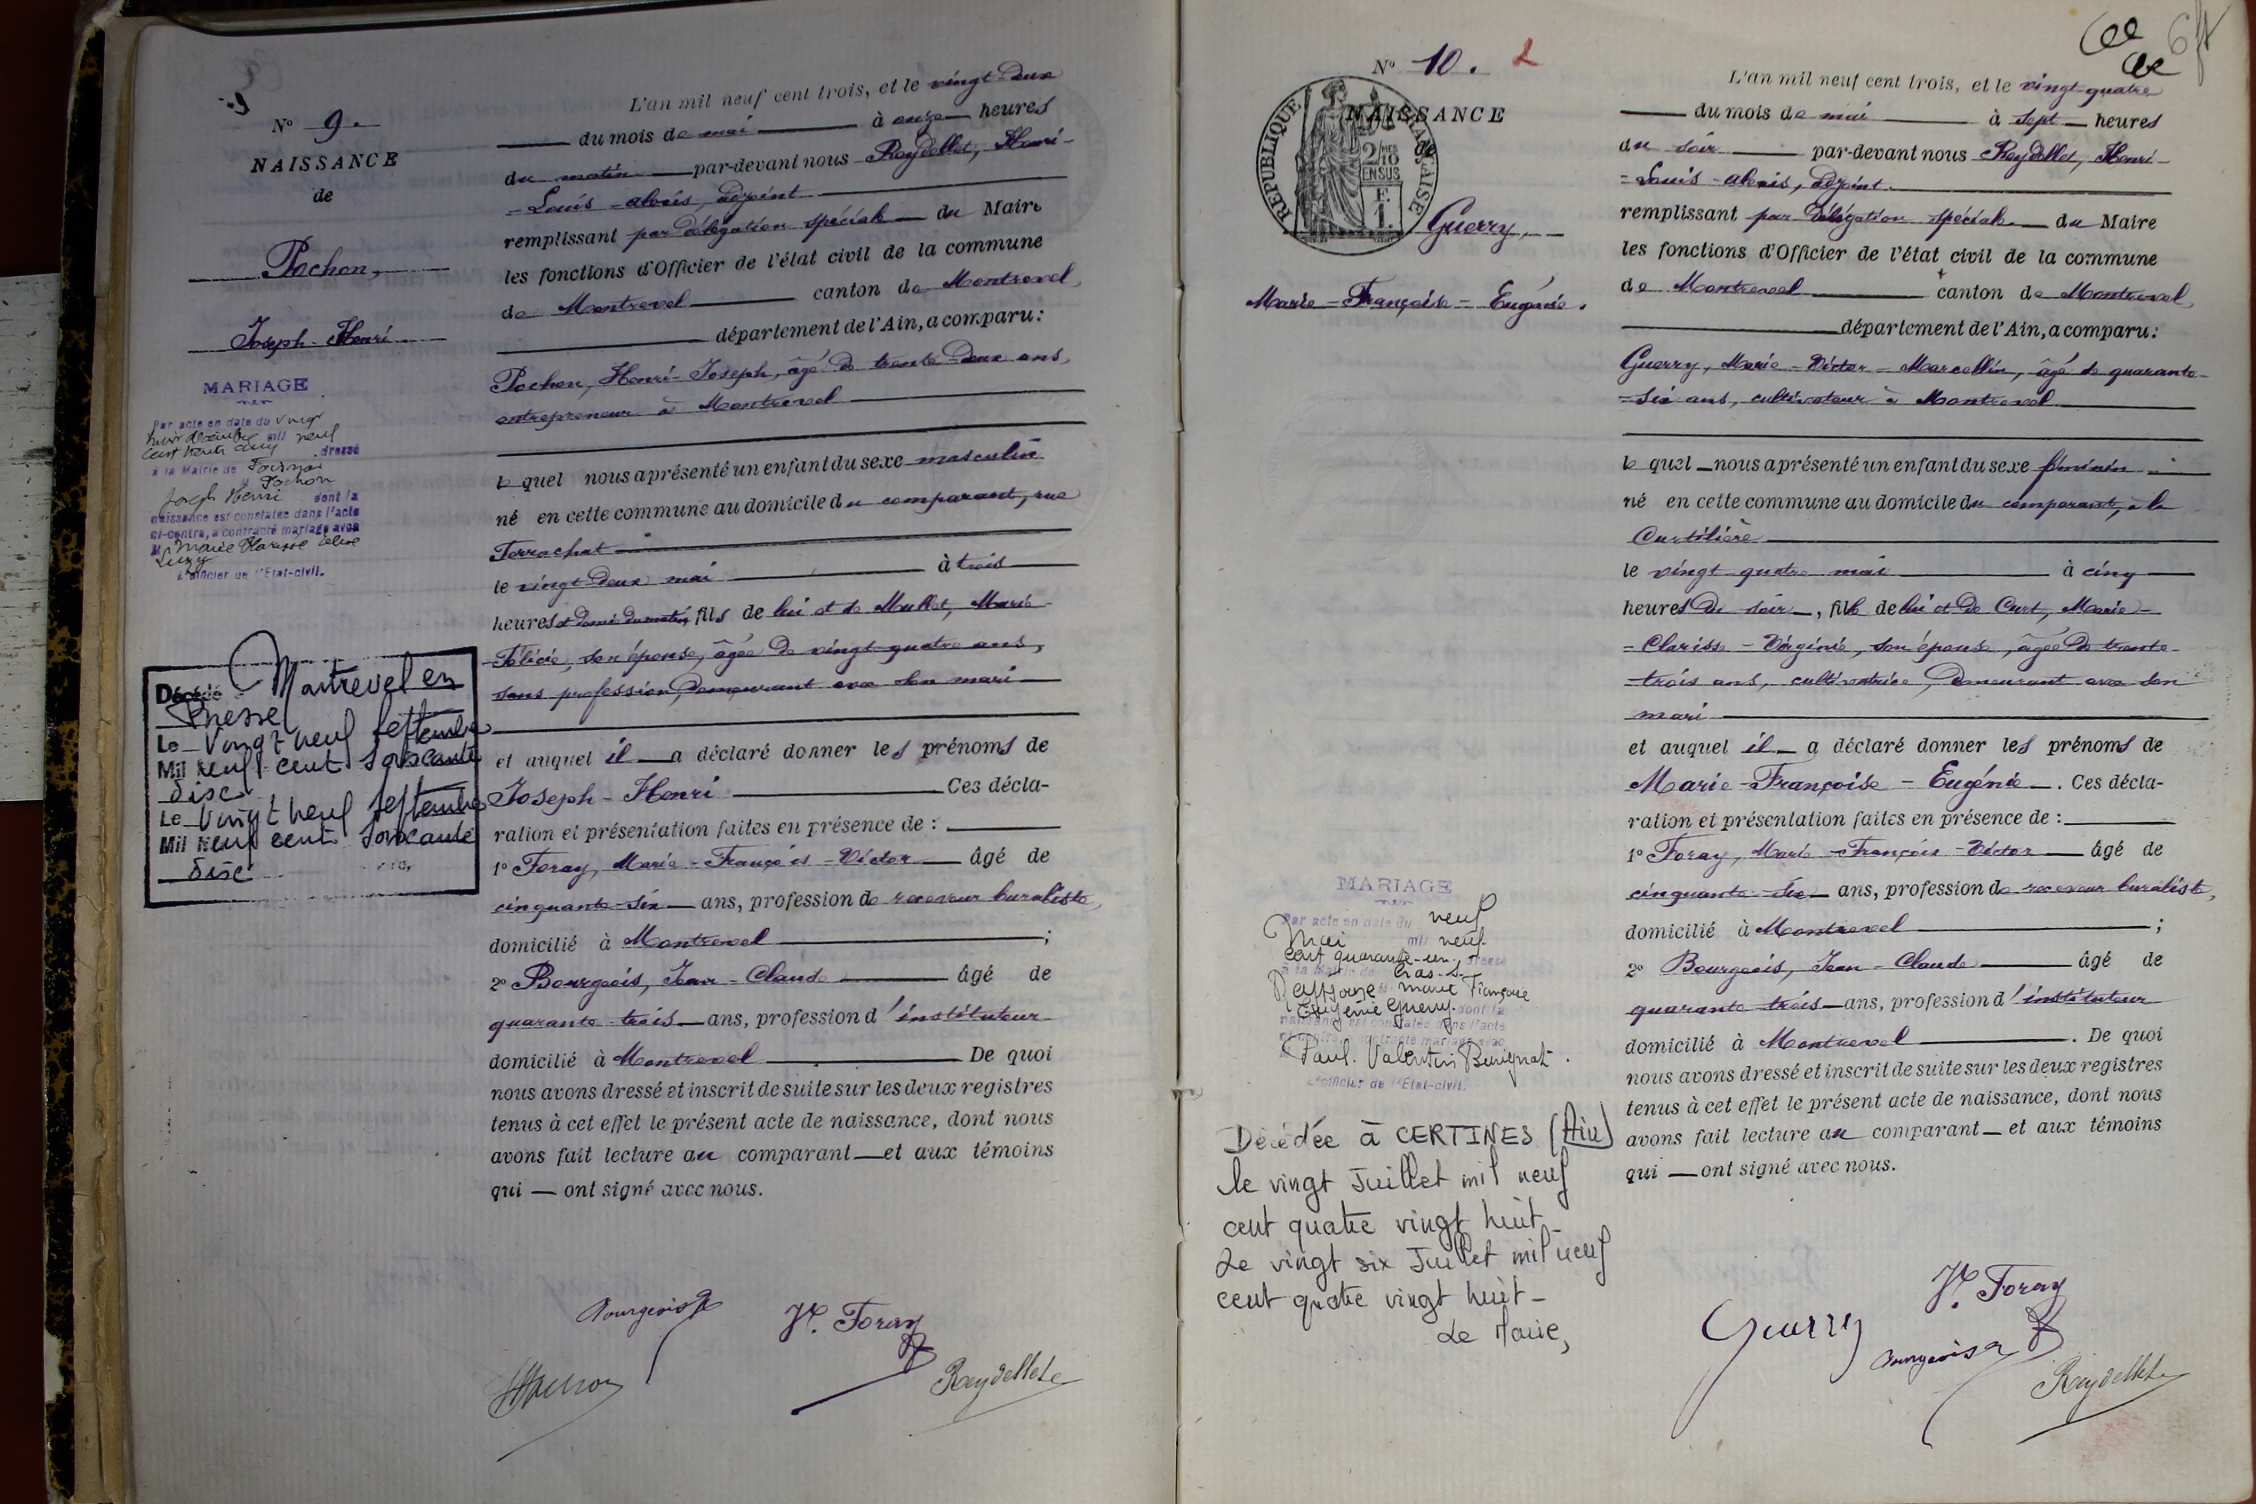 Nº 9.
NAISSANCE
de
Pochon,
Joseph-Henri
MARIAGE
Par acte en date du vingt
huit décembre mil neuf
cent trente cinq dressé
à la Mairie de
Pochon
Joseph Henri dont la
naissance est constatée dans l'acte
ci-contre, a contracté mariage avec
M Marie Clarisse
L'officier de l'Etat-civil.
Décédé à Montrevel en
Bresse
Le vingt neuf septembre
Mil neuf cent soixante
disc
Le vingt neuf septembre
Mil neuf cent soixante
disc
L'an mil neuf cent trois, et le vingt-deux
du mois de mai à onze heures
du matin par-devant nous Reydellet, Henri-
=Louis-Alexis, adjoint
remplissant par délégation spéciale du Maire
les fonctions d'Officier de l'état civil de la commune
de Montrevel canton de Montrevel,
département de l'Ain, a comparu:
Pochon, Henri-Joseph, âgé de trente-deux ans,
entrepreneur à Montrevel
lequel nous a présenté un enfant du sexe masculin
né en cette commune au domicile du comparant, rue
Ferrachat
le vingt-deux mai à trois
heures et demie du matin, fils de lui et de Mullet, Marie-
Félicie, son épouse, âgée de vingt-quatre ans,
sans profession, demeurant avec son mari
et auquel il a déclaré donner les prénoms de
Joseph-Henri Ces décla-
ration et présentation faites en présence de :
1º Foray, Marie-François-Victor âgé de
cinquante-six ans, profession de receveur buraliste,
domicilié à Montrevel ;
2º Bourgeois, Jean-Claude âgé de
quarante-trois ans, profession d'instituteur
domicilié à Montrevel De quoi
nous avons dressé et inscrit de suite sur les deux registres
tenus à cet effet le présent acte de naissance, dont nous
avons fait lecture au comparant et aux témoins
qui ont signé avec nous.
Bourgeois
Vr. Foray
HPochon
Reydellet
Nº 10. 2
NAISSANCE
de
REPUBLIQUE FRANÇAISE
2/10 EN SUS
F.
1.
Guerry,
Marie-Françoise-Eugénie.
MARIAGE
Par acte en date du neuf
Mai mil neuf
cent quarante-un, dressé
à la Mairie de Cras-s-
Reyssouze Marie Françoise
Eugénie Guerry dont la
naissance est constatée dans l'acte
ci-contre, a contracté mariage avec
Paul. Valentin Buvignat.
L'officier de l'Etat-civil.
Décédée à CERTINES (Ain)
le vingt Juillet mil neuf
cent quatre vingt huit_
Le vingt six Juillet mil neuf
cent quatre vingt huit_
Le Maire,
L'an mil neuf cent trois, et le vingt-quatre
du mois de mai à sept heures
du soir par-devant nous Reydellet, Henri-
=Louis-Alexis, adjoint
remplissant par délégation spéciale du Maire
les fonctions d'Officier de l'état civil de la commune
de Montrevel canton de Montrevel,
département de l'Ain, a comparu:
Guerry, Marie-Victor-Marcellin, âgé de quarante-
=six ans, cultivateur à Montrevel
lequel nous a présenté un enfant du sexe féminin
né en cette commune au domicile du comparant, à la
Curtilière
le vingt-quatre mai à cinq
heures du soir, fille de lui et de Curt, Marie-
=Clarisse-Virginie, son épouse, âgée de trente-
-trois ans, cultivatrice, demeurant avec son
mari
et auquel il a déclaré donner les prénoms de
Marie-Françoise-Eugénie. Ces décla-
ration et présentation faites en présence de :
1º Foray, Marie-François-Victor âgé de
cinquante-six ans, profession de receveur buraliste,
domicilié à Montrevel ;
2º Bourgeois, Jean-Claude âgé de
quarante-trois ans, profession d'instituteur
domicilié à Montrevel. De quoi
nous avons dressé et inscrit de suite sur les deux registres
tenus à cet effet le présent acte de naissance, dont nous
avons fait lecture au comparant et aux témoins
qui ont signé avec nous.
Vr. Foray
Guerry
Bourgeois
Reydellet